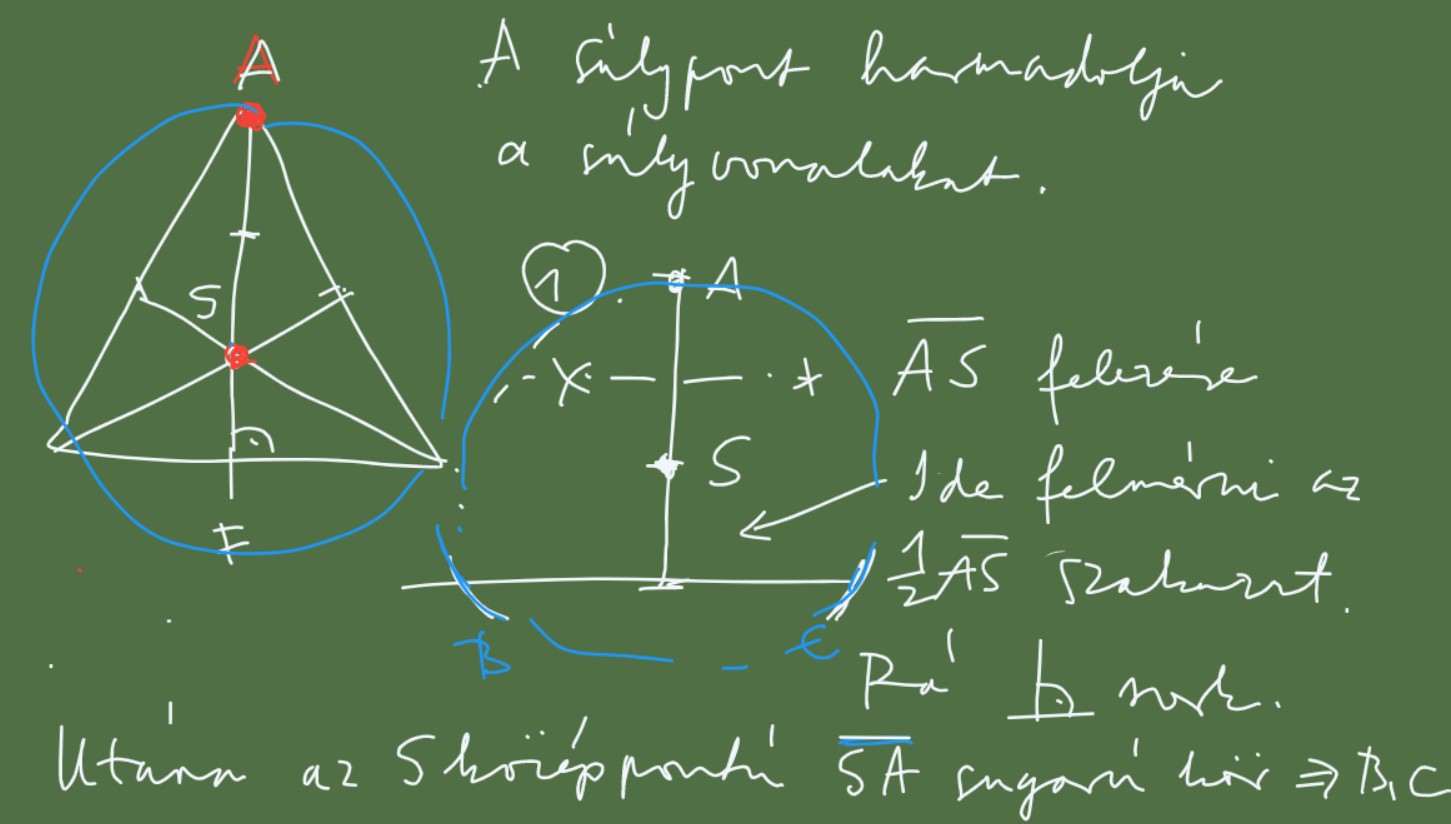 A
A súlypont harmadolja
a súlyvonalakat.
S
F
1.
A
S
B
C
AS felezése
Ide felmérni az
1/2 AS szakaszt.
Rá
Utána az S középpontú SA sugarú kör ⇒ B, C